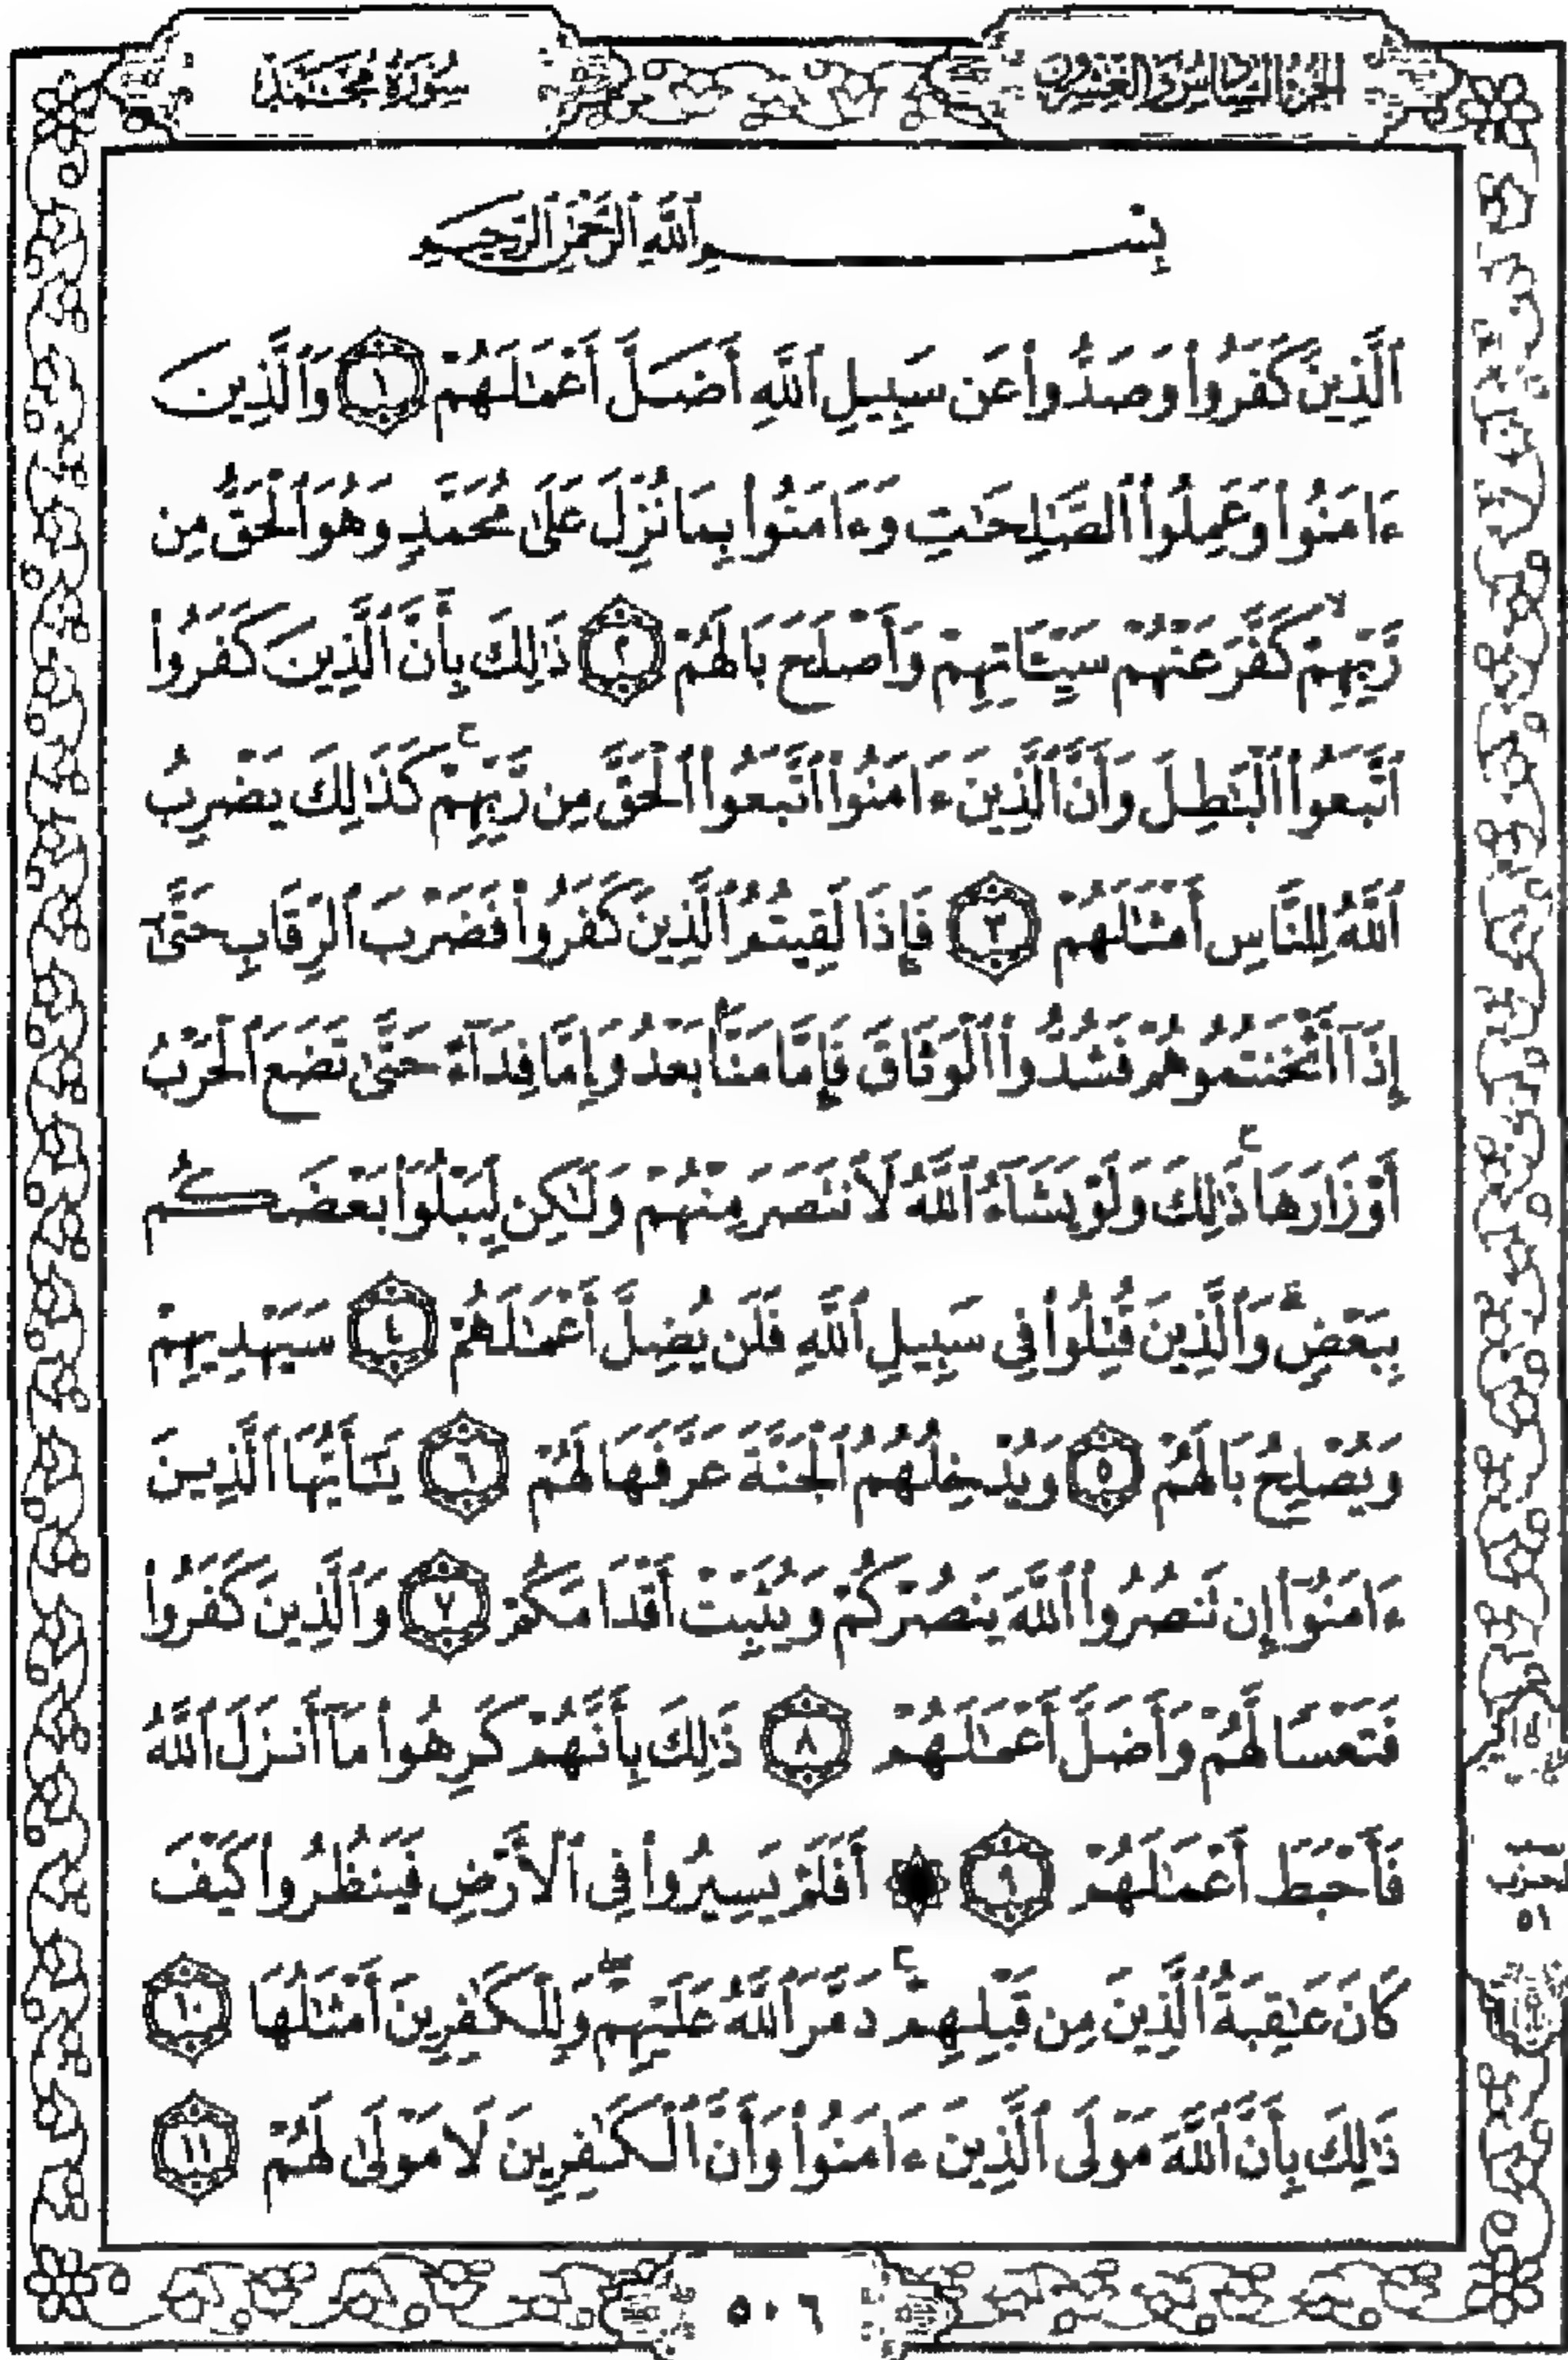 الجزء السادس والعشرون
سورة محمد
بِسْمِ ٱللَّهِ ٱلرَّحْمَٰنِ ٱلرَّحِيمِ
ٱلَّذِينَ كَفَرُوا۟ وَصَدُّوا۟ عَن سَبِيلِ ٱللَّهِ أَضَلَّ أَعْمَٰلَهُمْ ١ وَٱلَّذِينَ
ءَامَنُوا۟ وَعَمِلُوا۟ ٱلصَّٰلِحَٰتِ وَءَامَنُوا۟ بِمَا نُزِّلَ عَلَىٰ مُحَمَّدٍ وَهُوَ ٱلْحَقُّ مِن
رَّبِّهِمْ ۙ كَفَّرَ عَنْهُمْ سَيِّـَٔاتِهِمْ وَأَصْلَحَ بَالَهُمْ ٢ ذَٰلِكَ بِأَنَّ ٱلَّذِينَ كَفَرُوا۟
ٱتَّبَعُوا۟ ٱلْبَٰطِلَ وَأَنَّ ٱلَّذِينَ ءَامَنُوا۟ ٱتَّبَعُوا۟ ٱلْحَقَّ مِن رَّبِّهِمْ ۚ كَذَٰلِكَ يَضْرِبُ
ٱللَّهُ لِلنَّاسِ أَمْثَٰلَهُمْ ٣ فَإِذَا لَقِيتُمُ ٱلَّذِينَ كَفَرُوا۟ فَضَرْبَ ٱلرِّقَابِ حَتَّىٰٓ
إِذَآ أَثْخَنتُمُوهُمْ فَشُدُّوا۟ ٱلْوَثَاقَ فَإِمَّا مَنًّۢا بَعْدُ وَإِمَّا فِدَآءً حَتَّىٰ تَضَعَ ٱلْحَرْبُ
أَوْزَارَهَا ۚ ذَٰلِكَ وَلَوْ يَشَآءُ ٱللَّهُ لَٱنتَصَرَ مِنْهُمْ وَلَٰكِن لِّيَبْلُوَا۟ بَعْضَكُم
بِبَعْضٍ ۗ وَٱلَّذِينَ قُتِلُوا۟ فِى سَبِيلِ ٱللَّهِ فَلَن يُضِلَّ أَعْمَٰلَهُمْ ٤ سَيَهْدِيهِمْ
وَيُصْلِحُ بَالَهُمْ ٥ وَيُدْخِلُهُمُ ٱلْجَنَّةَ عَرَّفَهَا لَهُمْ ٦ يَٰٓأَيُّهَا ٱلَّذِينَ
ءَامَنُوٓا۟ إِن تَنصُرُوا۟ ٱللَّهَ يَنصُرْكُمْ وَيُثَبِّتْ أَقْدَامَكُمْ ٧ وَٱلَّذِينَ كَفَرُوا۟
فَتَعْسًا لَّهُمْ وَأَضَلَّ أَعْمَٰلَهُمْ ٨ ذَٰلِكَ بِأَنَّهُمْ كَرِهُوا۟ مَآ أَنزَلَ ٱللَّهُ
فَأَحْبَطَ أَعْمَٰلَهُمْ ٩ ۞ أَفَلَمْ يَسِيرُوا۟ فِى ٱلْأَرْضِ فَيَنظُرُوا۟ كَيْفَ
كَانَ عَٰقِبَةُ ٱلَّذِينَ مِن قَبْلِهِمْ ۚ دَمَّرَ ٱللَّهُ عَلَيْهِمْ ۖ وَلِلْكَٰفِرِينَ أَمْثَٰلُهَا ١٠
ذَٰلِكَ بِأَنَّ ٱللَّهَ مَوْلَى ٱلَّذِينَ ءَامَنُوا۟ وَأَنَّ ٱلْكَٰفِرِينَ لَا مَوْلَىٰ لَهُمْ ١١
الحزب
٥١
٥٠٦